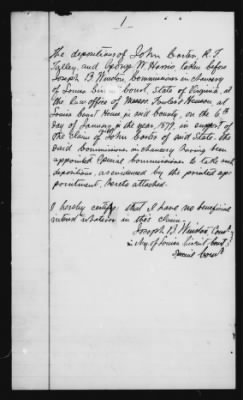 1
The depositions of John Carter, R. T.
and George W. Harris, taken before
Joseph B. Winston Commissioner in chancery
of Louisa Circuit Court, State of Virginia, at
the law office of Messrs. & at
Louisa Court House in said county, on the 6th
day of January in the year, 1879, in support of
the claim of John of said State, the
said commissioner in chancery having been
appointed Special commissioner to take said
depositions, as evidenced by the printed ap-
pointment, hereto attached.
I hereby certify that I have no beneficial
interest whatever in this claim.
Joseph B. Winston, Comr
in chy. of Louisa Circuit Court,
Special Comr